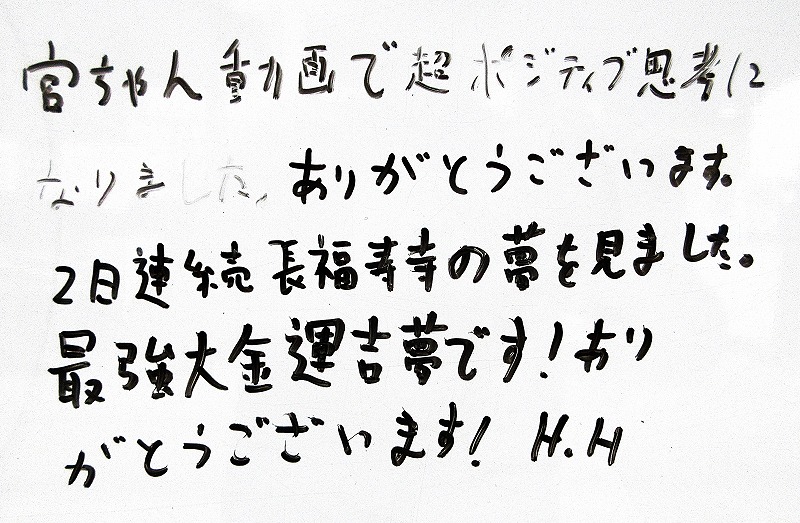 宮ちゃん動画で超ポジティブ思考に
なりました。ありがとうございます。
2日連続長福寿寺の夢を見ました。
最強大金運吉夢です！あり
がとうございます！ H.H